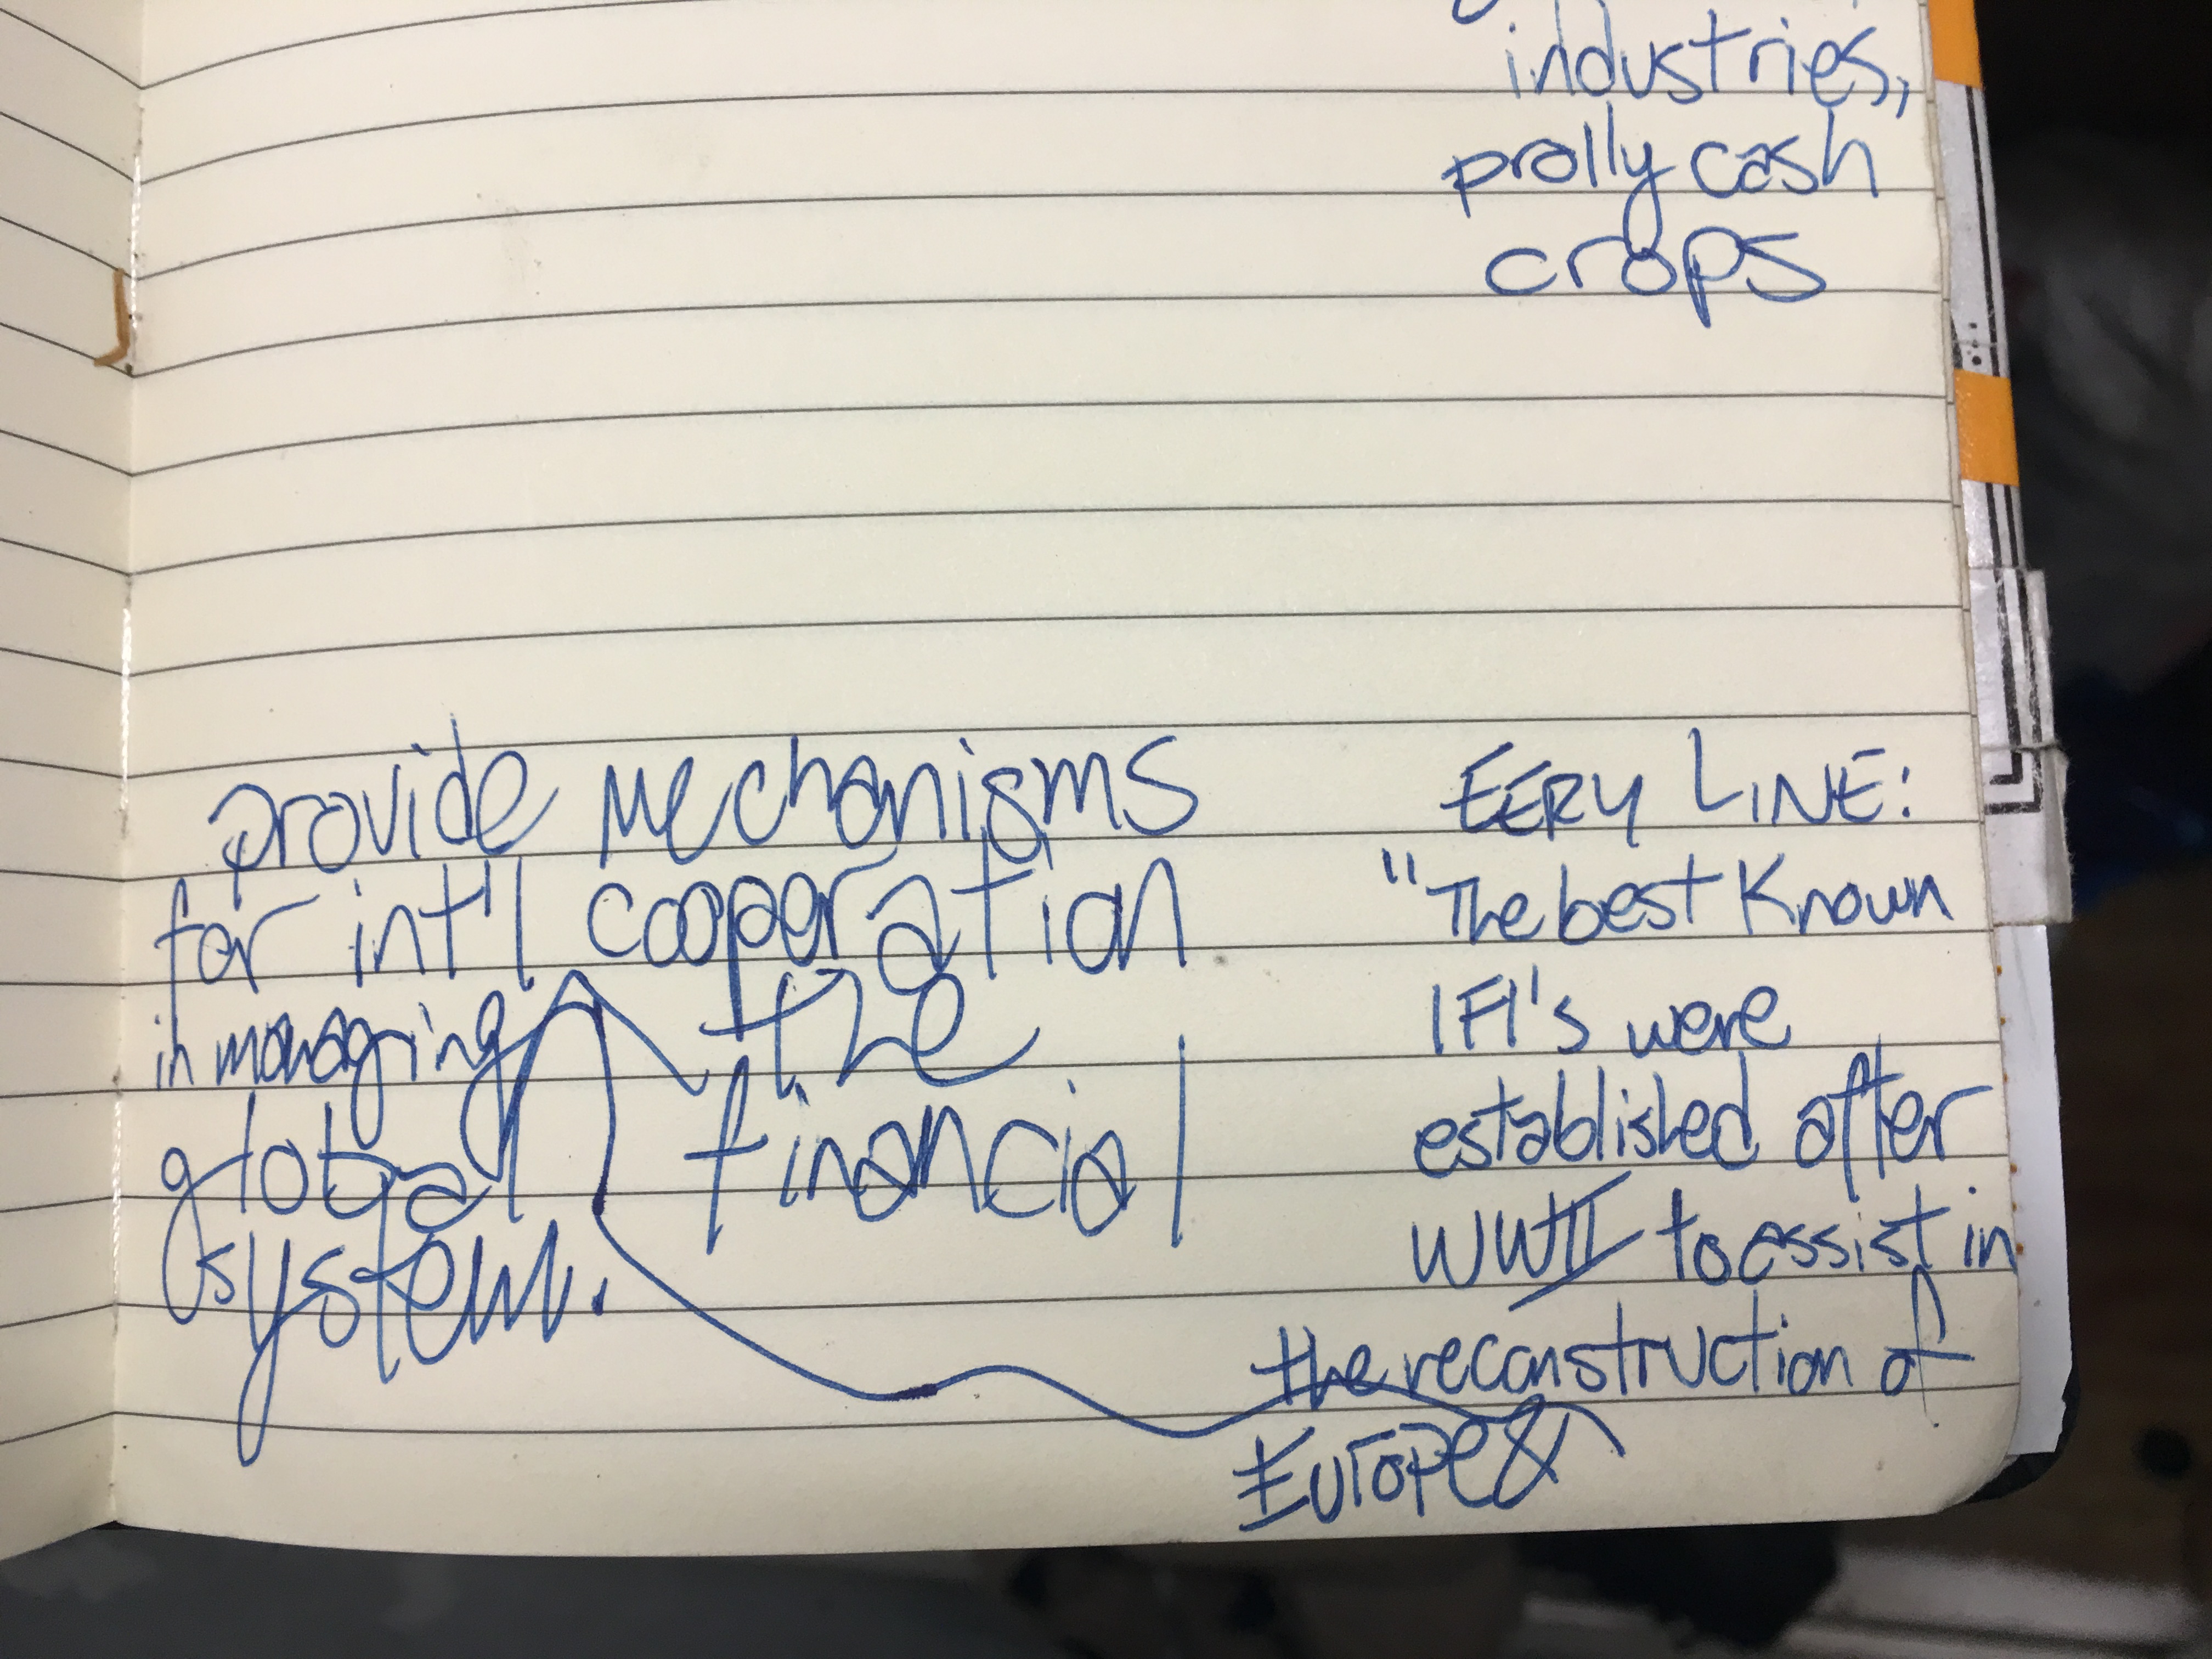 industries,
prolly cash
crops
provide mechanisms
for int'l cooperation
in managing the
global financial
system.
EERY LINE:
"The best Known
IFI's were
established after
WWII to assist in
the reconstruction of
Europe &